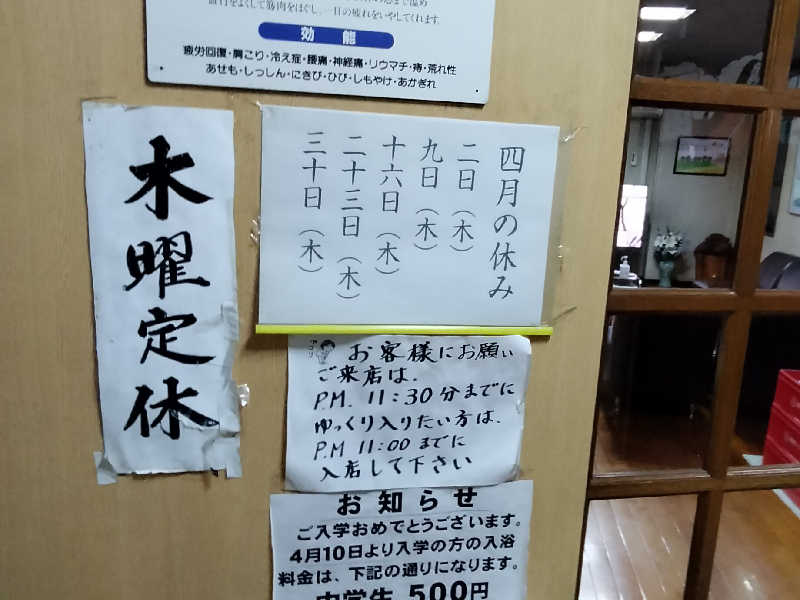 効能
疲労回復・肩こり・冷え症・腰痛・神経痛・リウマチ・痔・荒れ性
あせも・しっしん・にきび・ひび・しもやけ・あかぎれ
木曜定休
四月の休み
二日(木)
九日(木)
十六日(木)
二十三日(木)
三十日(木)
お客様にお願い
ご来店は、
P.M. 11:30分までに
ゆっくり入りたい方は、
P.M 11:00までに
入店して下さい
お知らせ
ご入学おめでとうございます。
4月10日より入学の方の入浴
料金は、下記の通りになります。
中学生 500円